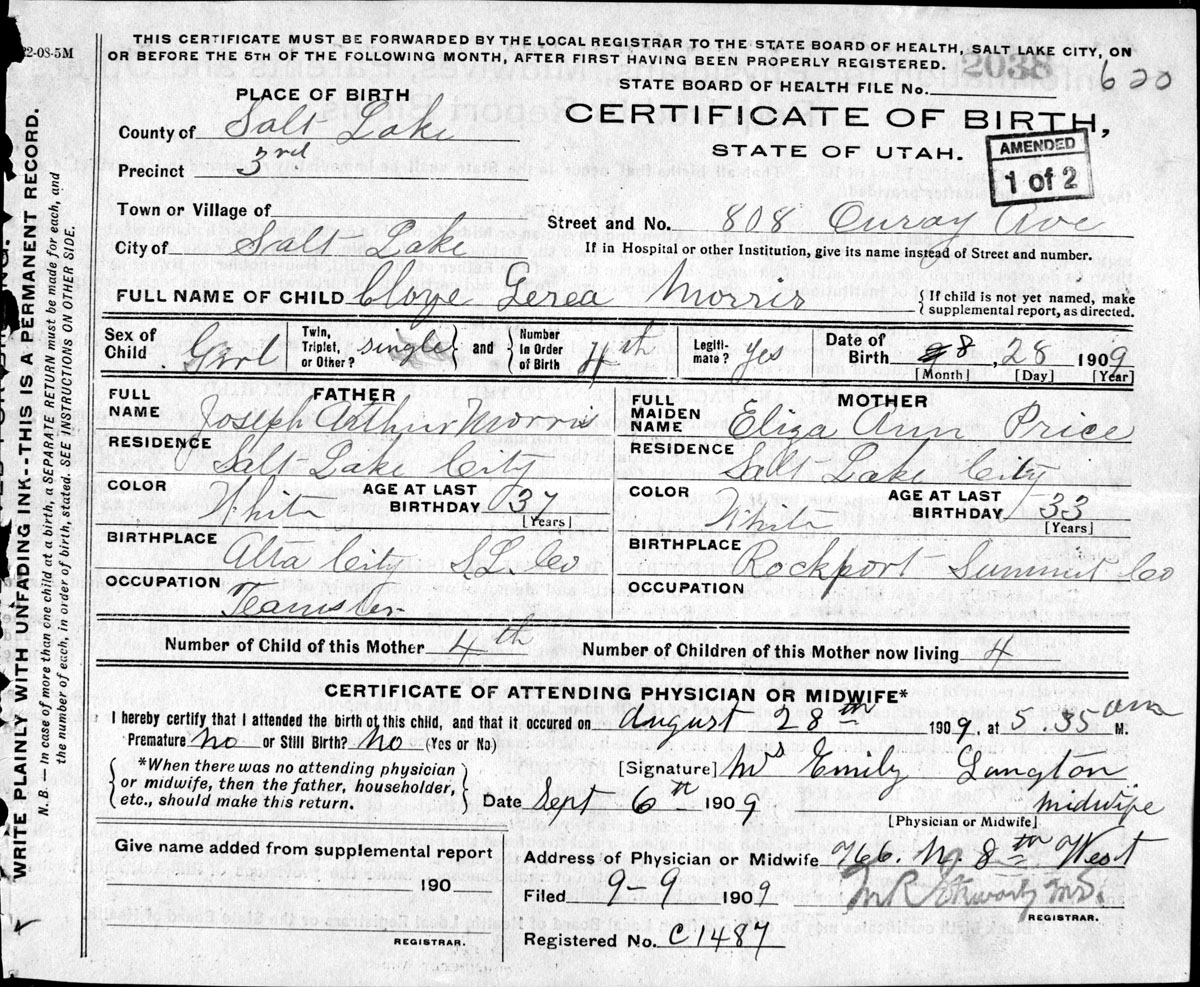 22-08-5M
THIS CERTIFICATE MUST BE FORWARDED BY THE LOCAL REGISTRAR TO THE STATE BOARD OF HEALTH, SALT LAKE CITY, ON
OR BEFORE THE 5TH OF THE FOLLOWING MONTH, AFTER FIRST HAVING BEEN PROPERLY REGISTERED.
2038
620
STATE BOARD OF HEALTH FILE No.
PLACE OF BIRTH
CERTIFICATE OF BIRTH,
STATE OF UTAH.
AMENDED
1 of 2
County of Salt Lake
Precinct 3rd
Town or Village of
Street and No. 808 Ouray Ave
City of Salt Lake
If in Hospital or other Institution, give its name instead of Street and number.
FULL NAME OF CHILD Cloye Lerea Morris
{ If child is not yet named, make
supplemental report, as directed.
Sex of Child Girl
Twin, Triplet, or Other? single } and { Number In Order of Birth 4th
Legiti-mate? yes
Date of Birth 8, 28 1909
[Month] [Day] [Year]
FATHER
FULL NAME Joseph Arthur Morris
RESIDENCE Salt Lake City
COLOR White AGE AT LAST BIRTHDAY 37 [Years]
BIRTHPLACE Alta City S.L. Co
OCCUPATION Teamster
MOTHER
FULL MAIDEN NAME Eliza Ann Price
RESIDENCE Salt Lake City
COLOR White AGE AT LAST BIRTHDAY 33 [Years]
BIRTHPLACE Rockport Summit Co
OCCUPATION
Number of Child of this Mother 4th Number of Children of this Mother now living 4
CERTIFICATE OF ATTENDING PHYSICIAN OR MIDWIFE*
I hereby certify that I attended the birth of this child, and that it occured on August 28th 1909, at 5.35 am M.
Premature no or Still Birth? No (Yes or No)
{ *When there was no attending physician
or midwife, then the father, householder,
etc., should make this return. }
[Signature] Mrs Emily Langton
Date Sept 6th 1909 midwife
[Physician or Midwife]
Give name added from supplemental report
190
REGISTRAR.
Address of Physician or Midwife 766. N. 8th West
Filed 9-9 1909
REGISTRAR.
Registered No. C1487
WRITE PLAINLY WITH UNFADING INK--THIS IS A PERMANENT RECORD.
N. B.—In case of more than one child at a birth, a SEPARATE RETURN must be made for each, and
the number of each, in order of birth, stated. SEE INSTRUCTIONS ON OTHER SIDE.